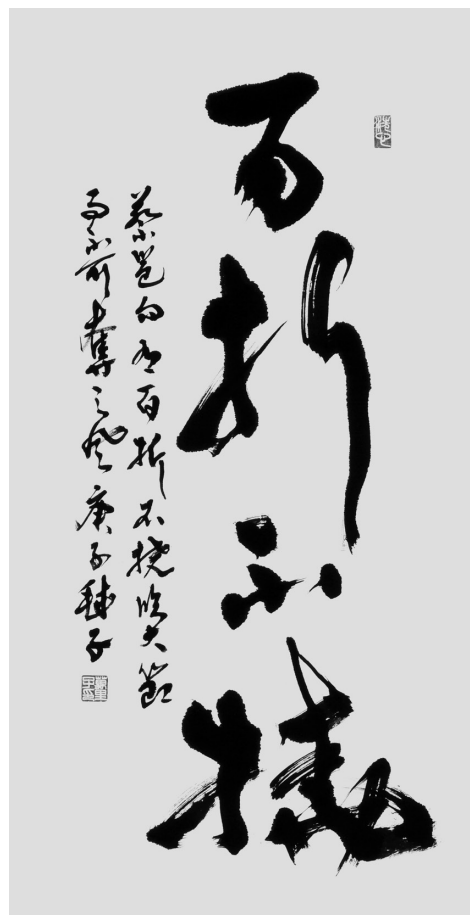 百折不撓
蔡邕句有百折不撓臨大節
而不可奪之風庚子